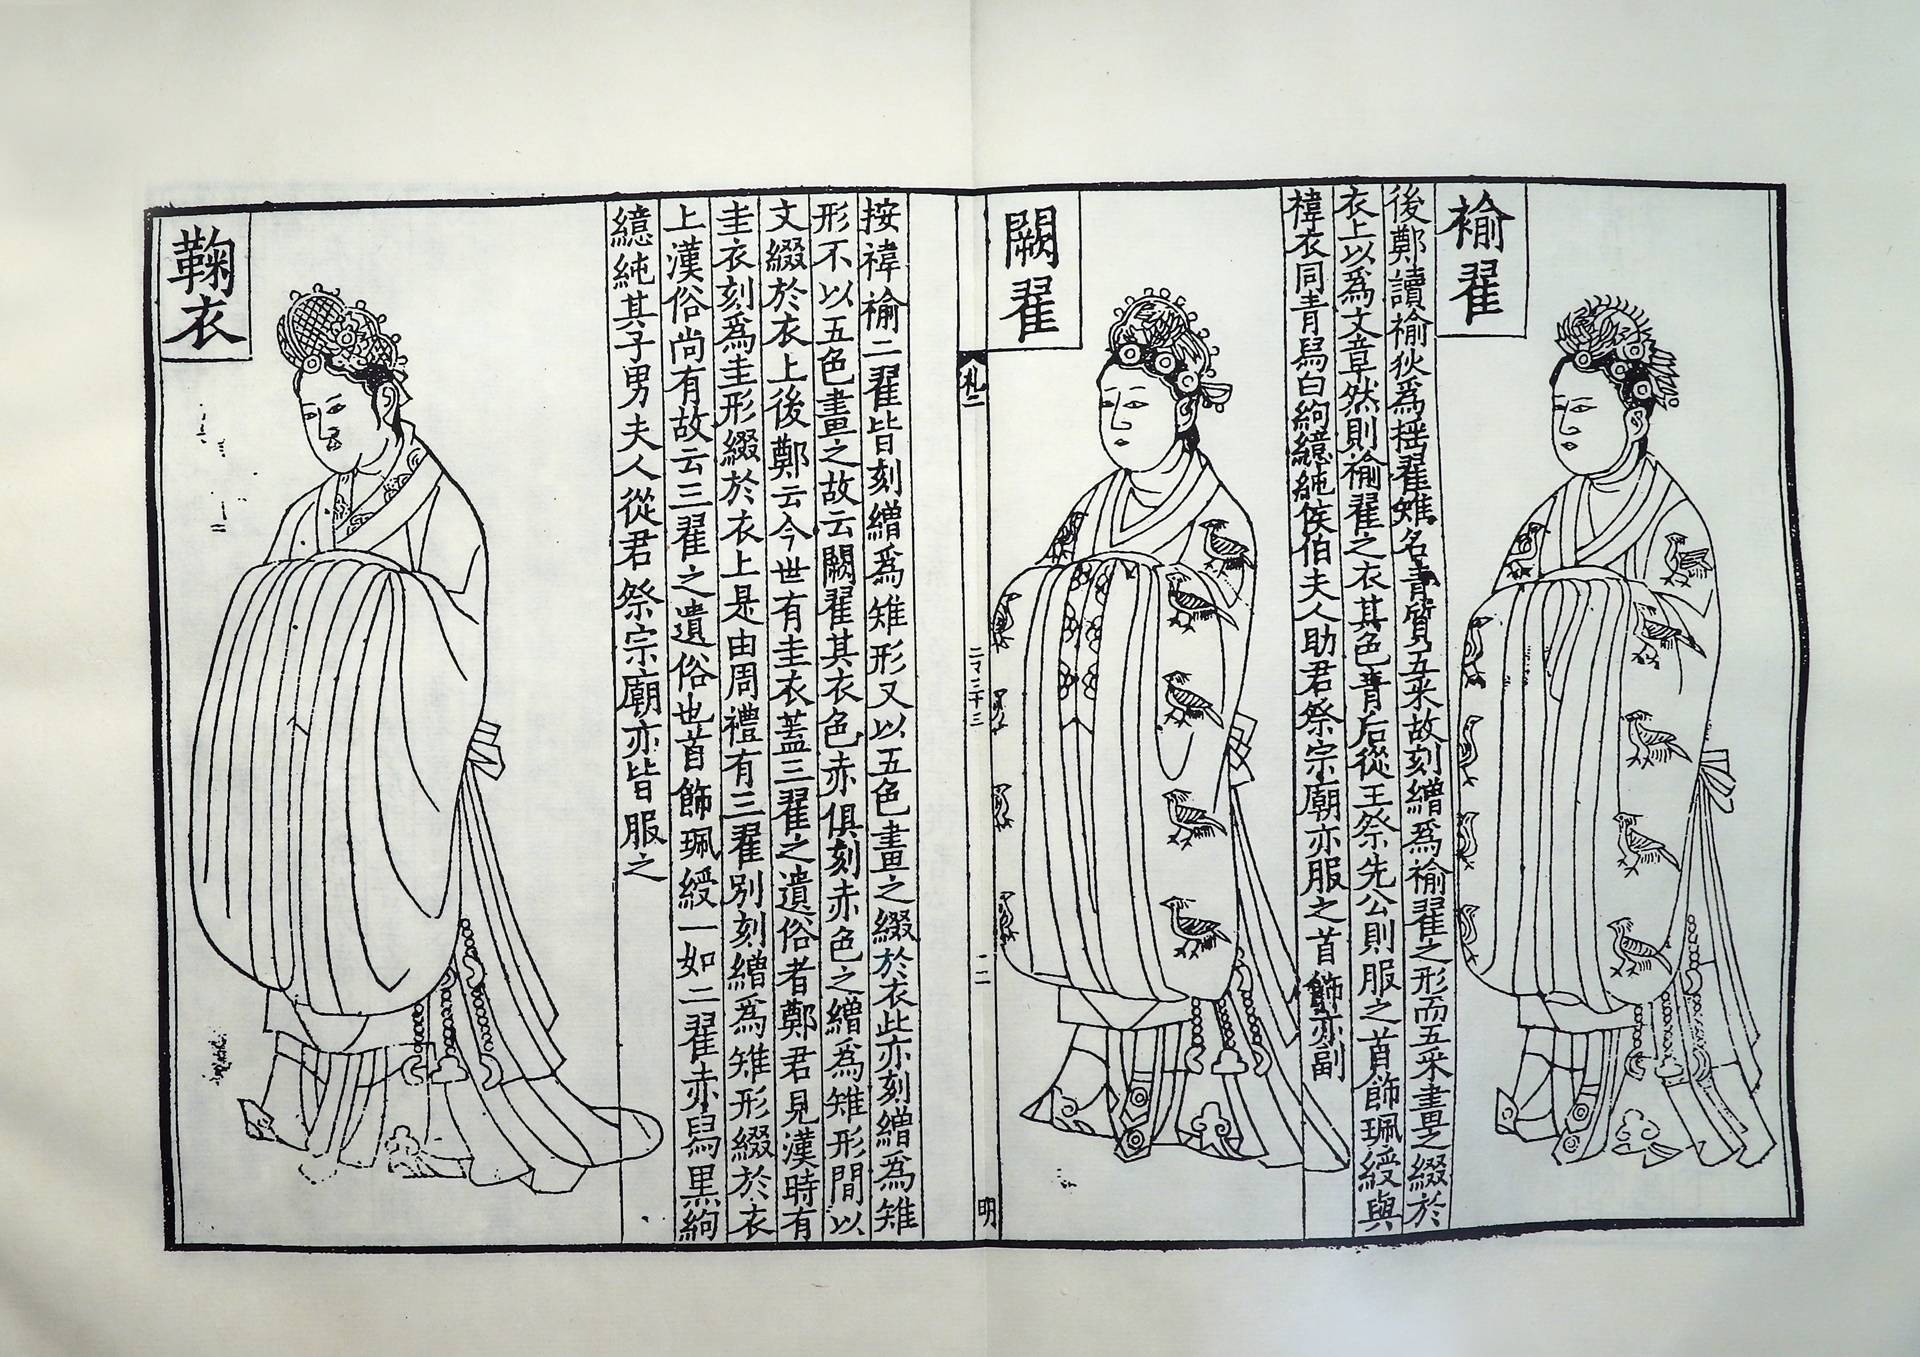 褕翟
後鄭讀褕狄爲揺翟雉名青質五采故刻繒爲褕翟之形而五采畫之綴於
衣上以爲文章然則褕翟之衣其色青后從王祭先公則服之首飾珮綬與
褘衣同青舄白絇繶純侯伯夫人助君祭宗廟亦服之首飾亦副
闕翟
札二
二百三十三
二
明
按褘褕二翟皆刻繒爲雉形又以五色畫之綴於衣此亦刻繒爲雉
形不以五色畫之故云闕翟其衣色赤俱刻赤色之繒爲雉形間以
文綴於衣上後鄭云今世有圭衣蓋三翟之遺俗者鄭君見漢時有
圭衣刻爲圭形綴於衣上是由周禮有三翟別刻繒爲雉形綴於衣
上漢俗尚有故云三翟之遺俗也首飾珮綬一如二翟赤舄黒絇
繶純其子男夫人從君祭宗廟亦皆服之
鞠衣